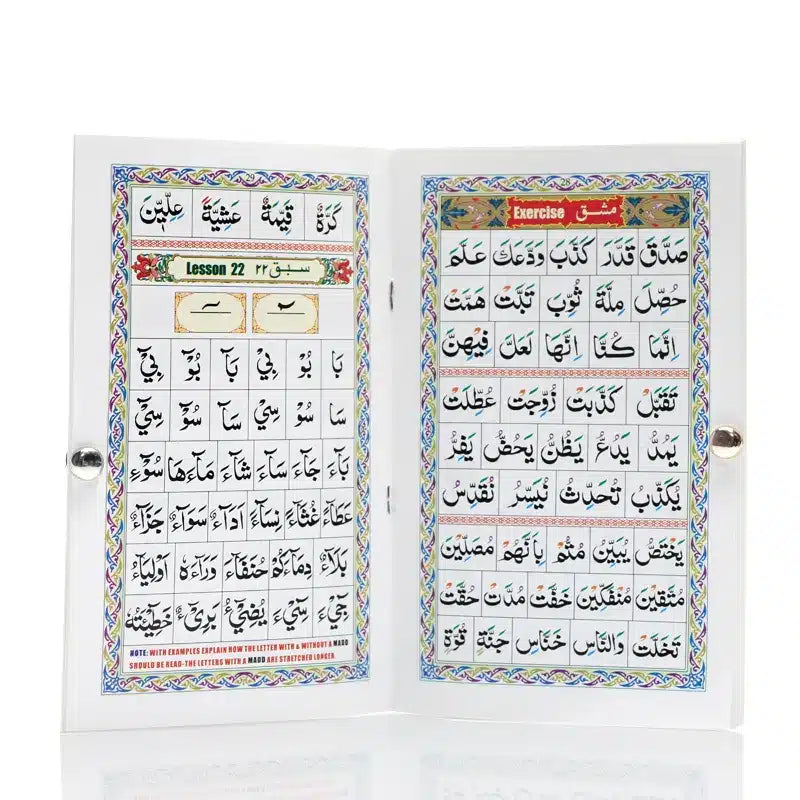 28
Exercise مشق
صَدَّقَ قَدَّرَ كَذَّبَ وَدَّعَكَ عَلَّمَ
حُصِّلَ مِلَّةَ ثُوِّبَ تَبَّتْ هَمَّتْ
اِنَّمَا كُنَّا اِنَّهَا لَعَلَّ فِيْهِنَّ
تَقَبَّلْ كَذَّبَتْ زُوِّجَتْ عُطِّلَتْ
يَمُدُّ يَدُعُّ يَظُنُّ يَحُضُّ يَفِرُّ
يُكَذِّبُ تُحَدِّثُ نُيَسِّرُ نُقَدِّسُ
يَخْتَصُّ يُبَيِّنُ مُتُّمْ بِاَنَّهُمْ مُصَلِّيْنَ
مُتَّقِيْنَ مُنْفَكِّيْنَ خَفَّتْ مُدَّتْ حُقَّتْ
تَخَلَّتْ وَالنَّاسِ خَنَّاسِ جَنَّةٍ قُوَّةٍ
29
كَرَّةٌ قَيِّمَةٌ عَشِيَّةً عِلِّيِّيْنَ
Lesson 22 سبق ٢٢
بَا بُوْ بِيْ بَآ بُوْٓ بِيْٓ
سَا سُوْ سِيْ سَآ سُوْٓ سِيْٓ
بَآءَ جَآءَ سَآءَ شَآءَ مَآءَهَا سُوْٓءِ
عَطَآءً غُثَآءً نِسَآءً اَدَآءٌ سَوَآءٌ جَزَآءً
بَلَآءٌ دِمَآءَكُمْ حُنَفَآءَ وَرَآءَهٗ اَوْلِيَآءُ
جِيْٓءَ سِيْٓءَ يُضِيْٓءُ بَرِيْٓءٌ خَطِيْٓئَتُهٗ
NOTE: WITH EXAMPLES EXPLAIN HOW THE LETTER WITH & WITHOUT A MADD
SHOULD BE READ-THE LETTERS WITH A MADD ARE STRETCHED LONGER.